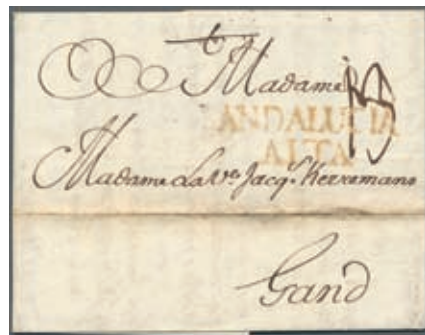 A Madame
ANDALUCIA
ALTA
Madame La Ve. Jacqs. Kerremans
Gand